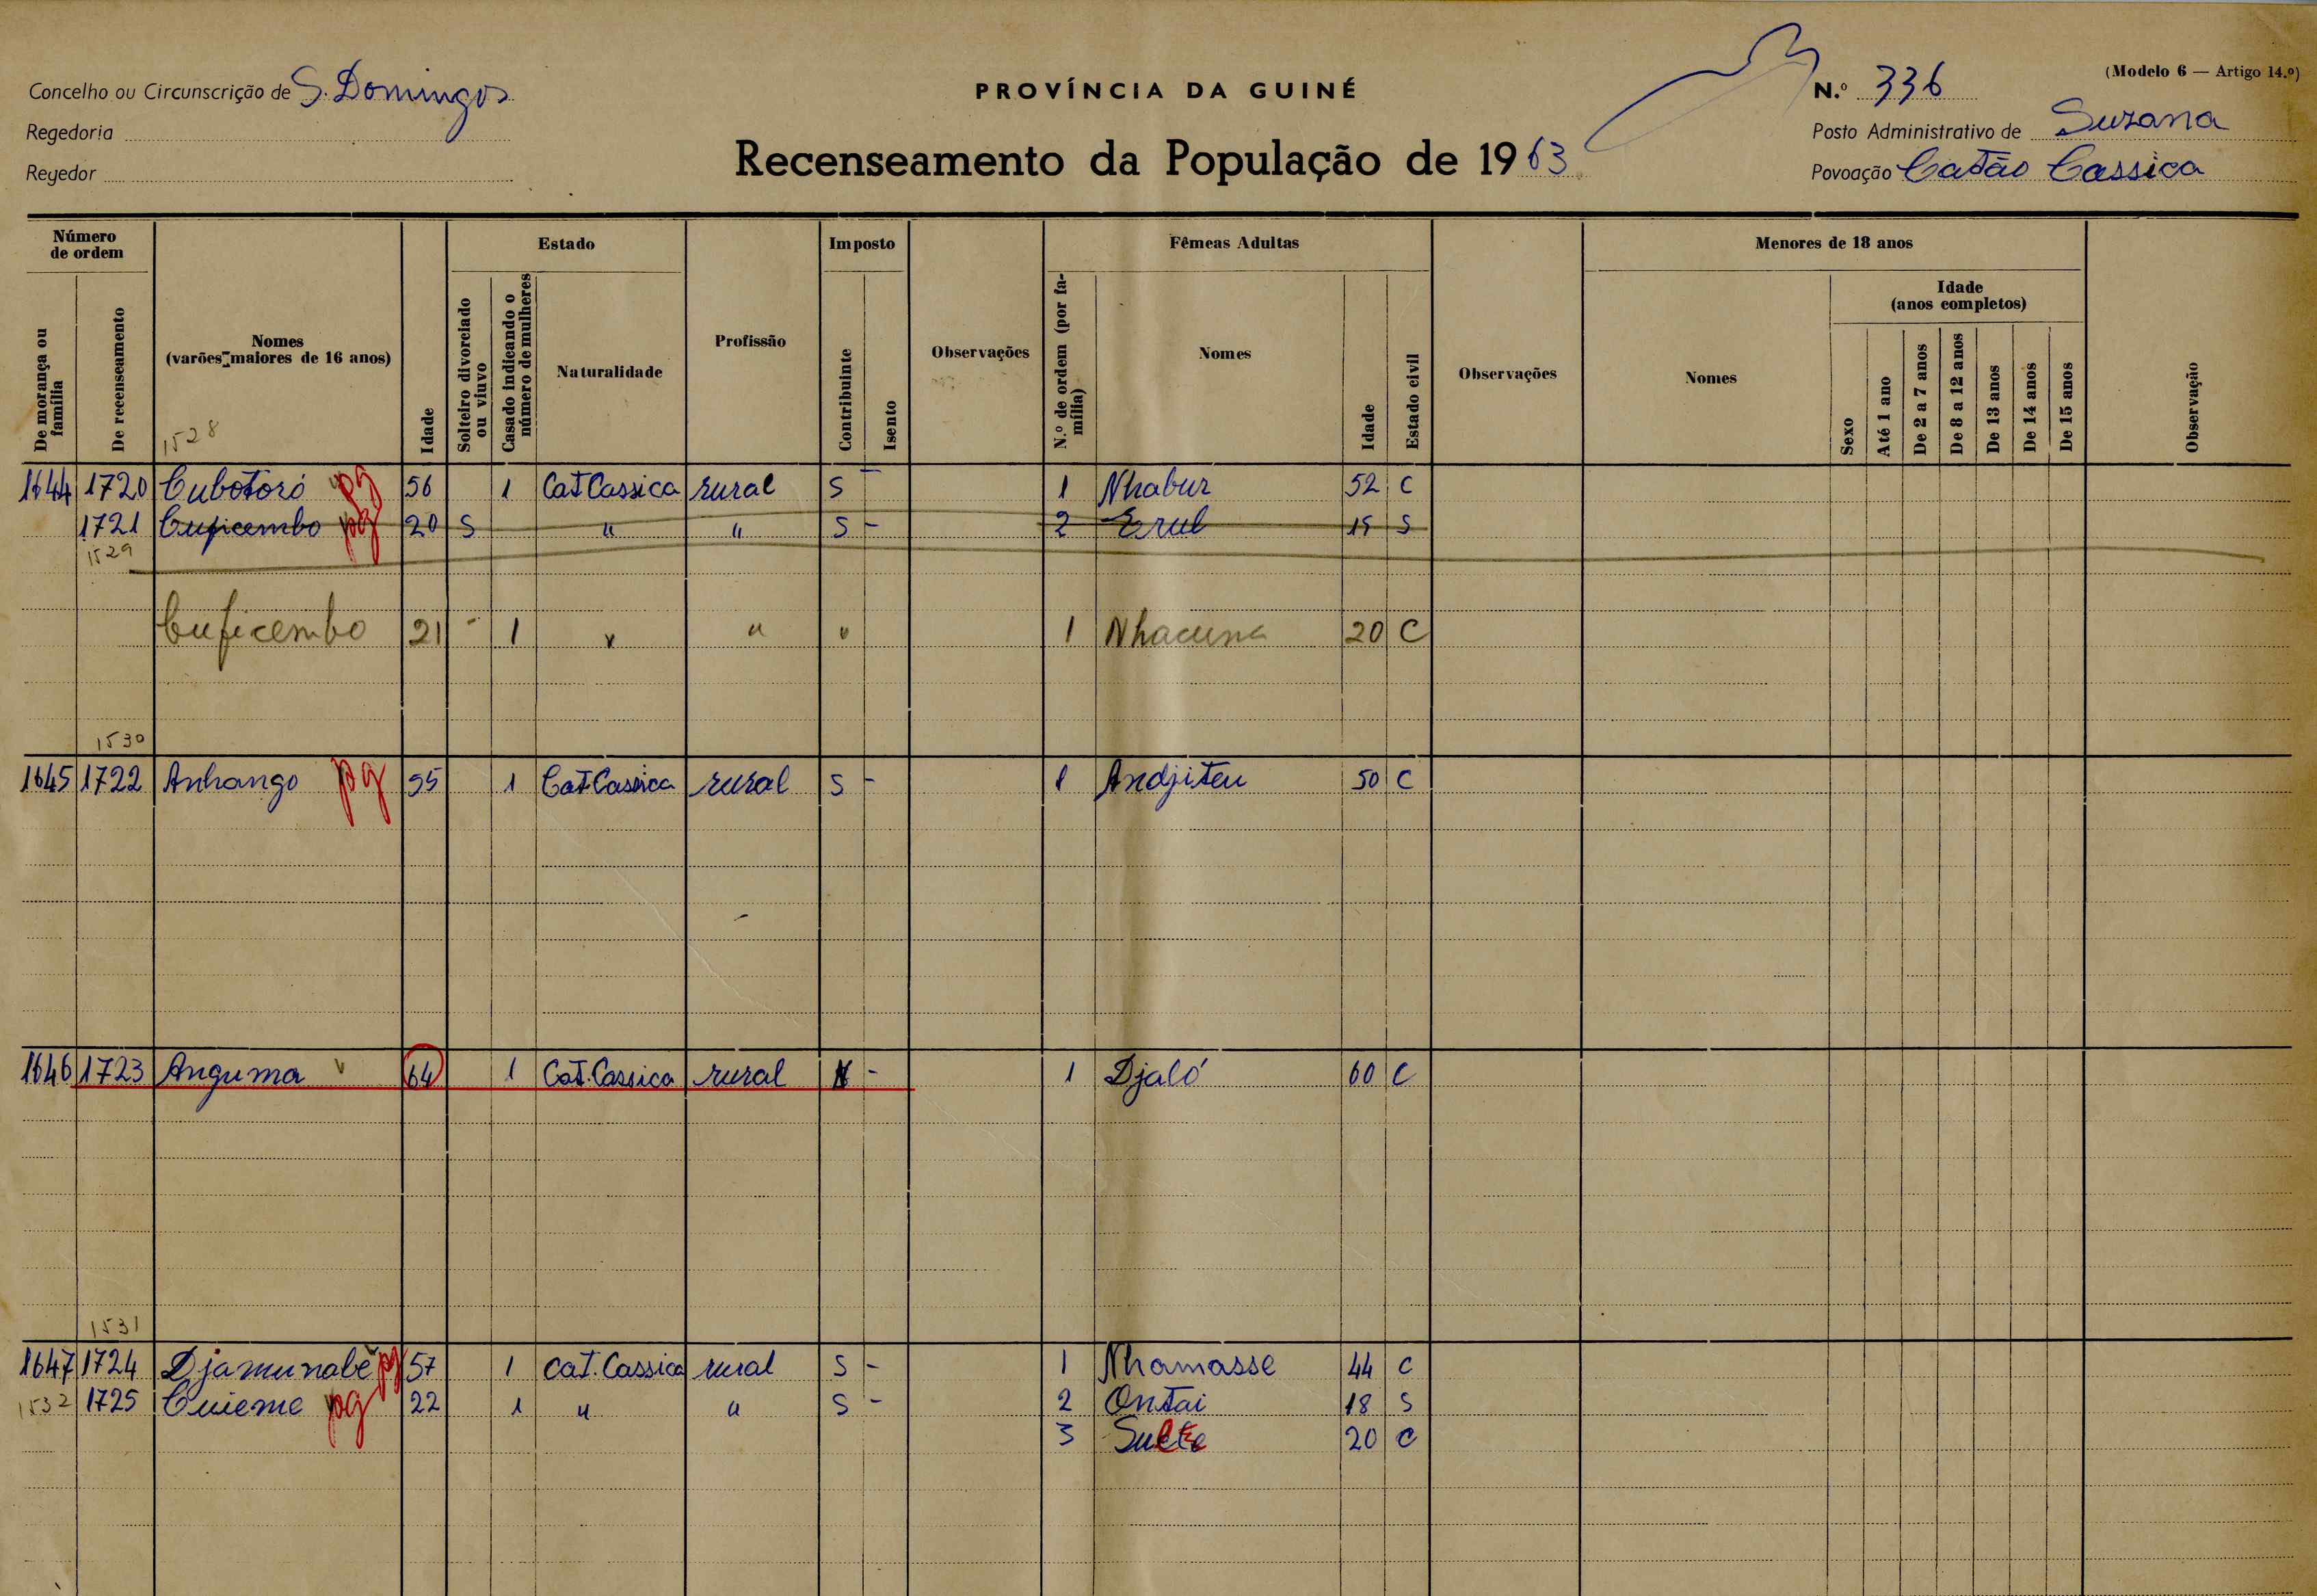 (Modelo 6 — Artigo 14.º)
Concelho ou Circunscrição de S. Domingos
PROVÍNCIA DA GUINÉ
N.º 336
Regedoria
Posto Administrativo de Suzana
Regedor
Recenseamento da População de 1963
Povoação Catão Cassica
Número de ordem
Estado
Imposto
Fêmeas Adultas
Menores de 18 anos
De morança ou família
De recenseamento
Nomes (varões maiores de 16 anos)
Idade
Solteiro divorciado ou viuvo
Casado indicando o número de mulheres
Naturalidade
Profissão
Contribuinte
Isento
Observações
N.º de ordem (por família)
Nomes
Idade
Estado civil
Observações
Nomes
Sexo
Idade (anos completos)
Até 1 ano
De 2 a 7 anos
De 8 a 12 anos
De 13 anos
De 14 anos
De 15 anos
Observação
1528
1644 1720 Cubotoró pg 56 1 Cat Cassica rural S - 1 Nhabur 52 C
1721 Cuficembo pg 20 S " " S - 2 Erul 15 S
1529
Cuficembo 21 - 1 " " " 1 Nhacuna 20 C
1530
1645 1722 Anhango pg 55 1 Cat Cassica rural S - 1 Andjiteu 50 C
1646 1723 Anguma 64 1 Cat. Cassica rural - 1 Djaló 60 C
1531
1647 1724 Djamunabe pg 57 1 Cat. Cassica rural S - 1 Nhamasse 44 C
1532 1725 Cuieme pg 22 1 " " S - 2 Ontai 18 S
3 20 C